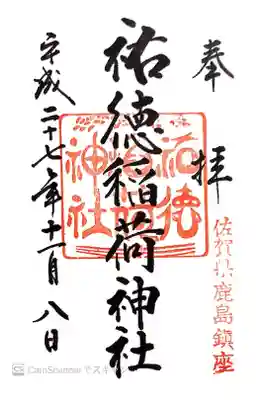 奉拝
佐賀県鹿島鎮座
祐徳稲荷神社
祐徳稲荷神社
平成二十七年十一月八日
CamScannerでスキャン